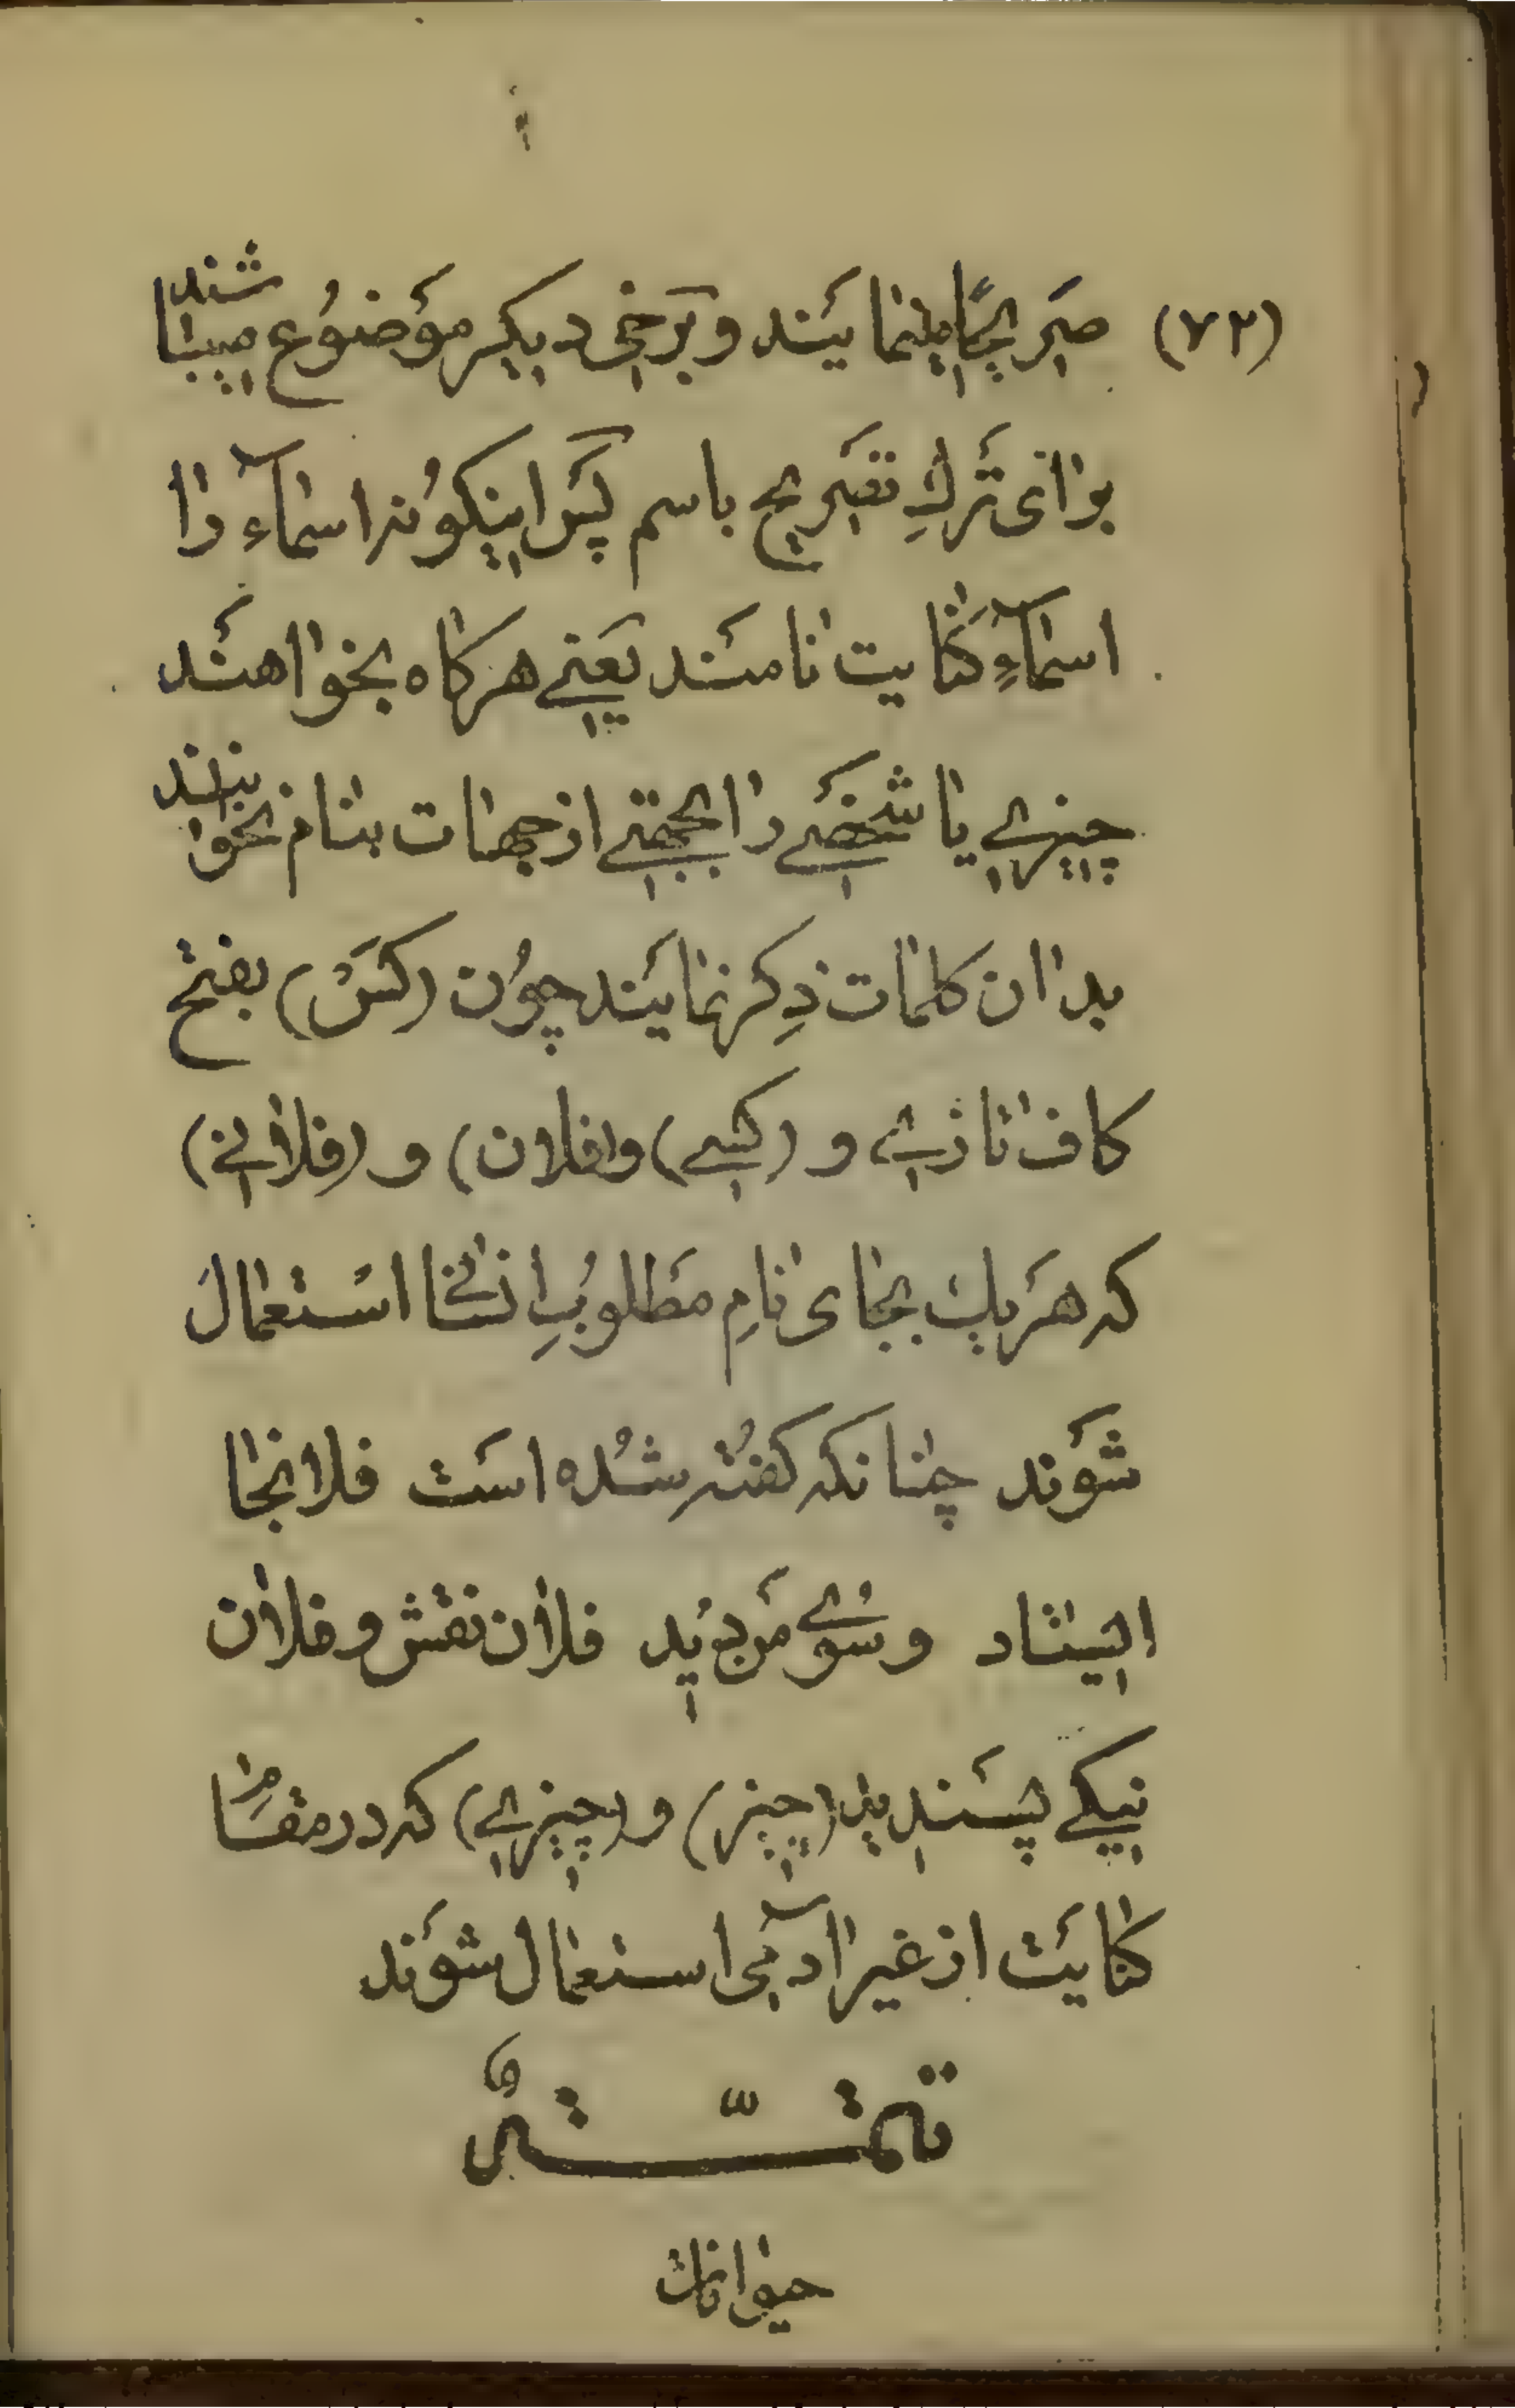 (۷۲) صَریحًا مینمایَند و بَرخی دیگر مَوضوُع میباشند
برای تَركِ تصَریح باسم پَس اینگوُنه اسمآء را
اسمآءِ كَنایت نامَند یَعنے هرگاه بخواهَند
چیزے یا شخصَے را بجهتے از جهات بنام نخوانند
بدان كلمات ذِكر نمایَند چوُن (كَسْ) بفتح
كاف تازے و (كسے) و(فلان) و (فلانے)
كه هَر یك بجای نامِ مَطلوُبِ انسانے استعمال
شَوند چنانكه گفتُه شُده است فلانجا
ایستاد و سُوے مَن دید فلان نقش و فلان
نیكے پسَندید (چیز) و (چیزے) كه در مقامِ
كنایَت از غیر آدمی استعمال شوَند
تتمّـــهٌ
حیوانات